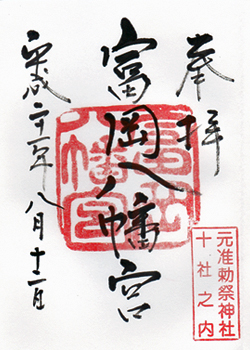 奉拝
富岡八幡宮
平成二十一年八月十二日
元准勅祭神社
十社之内
富岡八幡宮